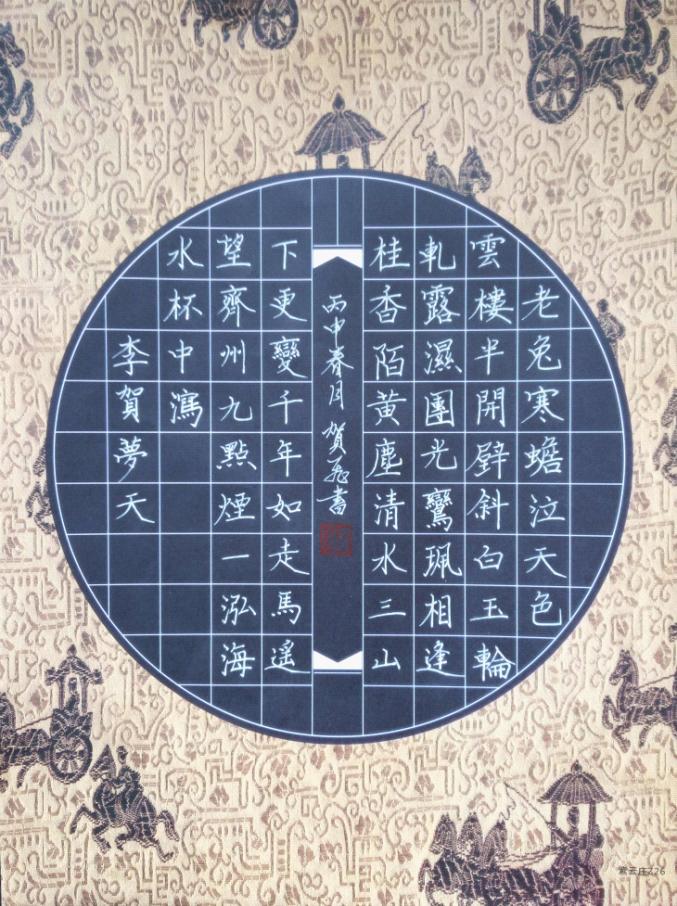 老兔寒蟾泣天色
雲樓半開壁斜白玉輪
軋露濕團光鸞珮相逢
桂香陌黃塵清水三山
丙申春月 賀書
下更變千年如走馬遙
望齊州九點煙一泓海
水杯中瀉
李賀夢天
紫云庄726